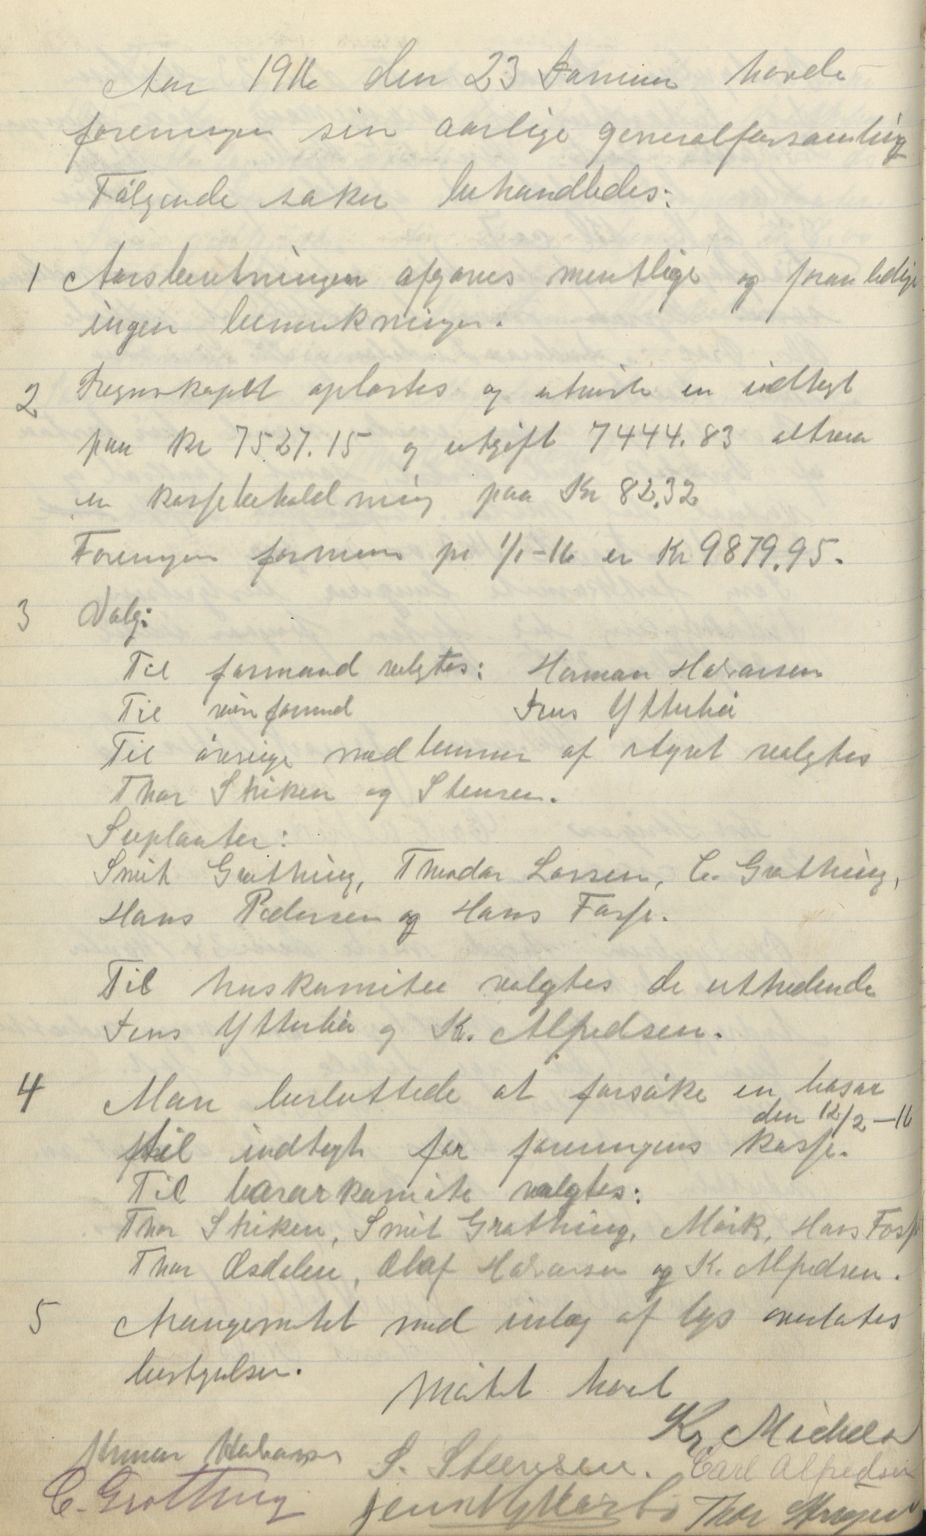 Aar 1916 den 23 Januar havde
foreningen sin aarlige generalforsamling
Følgende saker behandledes:
1 Aarsberetningen afgaves mundtlige og foranledige
ingen bemerkninger.
2 Regnskapet oplæstes og utviste en indtegt
paa Kr 7527.15 og utgift 7444.83 altsaa
en kassebeholdning paa Kr 82,32
Foreningens formue pr 1/1-16 er Kr 9879,95.
3 Valg:
Til formand valgtes: Herman Halvorsen
Til viceformd Jens Ytterbø
Til øvrige medlemmer af styret valgtes
Thor Skiken og Stensen.
Suplanter:
Smit Grøthing, Theodor Larsen, C. Grøthing,
Hans Pedersen og Hans Fosse.
Til huskomitee valgtes de uttredende
Jens Ytterbø og K. Alfredsen.
4 Man besluttede at forsøke en basar
den 12/2-16
til indtegt for foreningens kasse.
Til basarkomite valgtes:
Thor Skiken, Smit Grøthing, Mørk, Hans Fosse
Thor Øsdalen, Olaf Halvorsen og K. Alfredsen.
5 Arangemtet med inlæg af lys overlates
bestyrelsen.
Møtet hævet
Kr. Michels
Herman Halvorsen S. Steensen. Carl Alfredsen
C. Grøtting Jens Ytterbø Thor